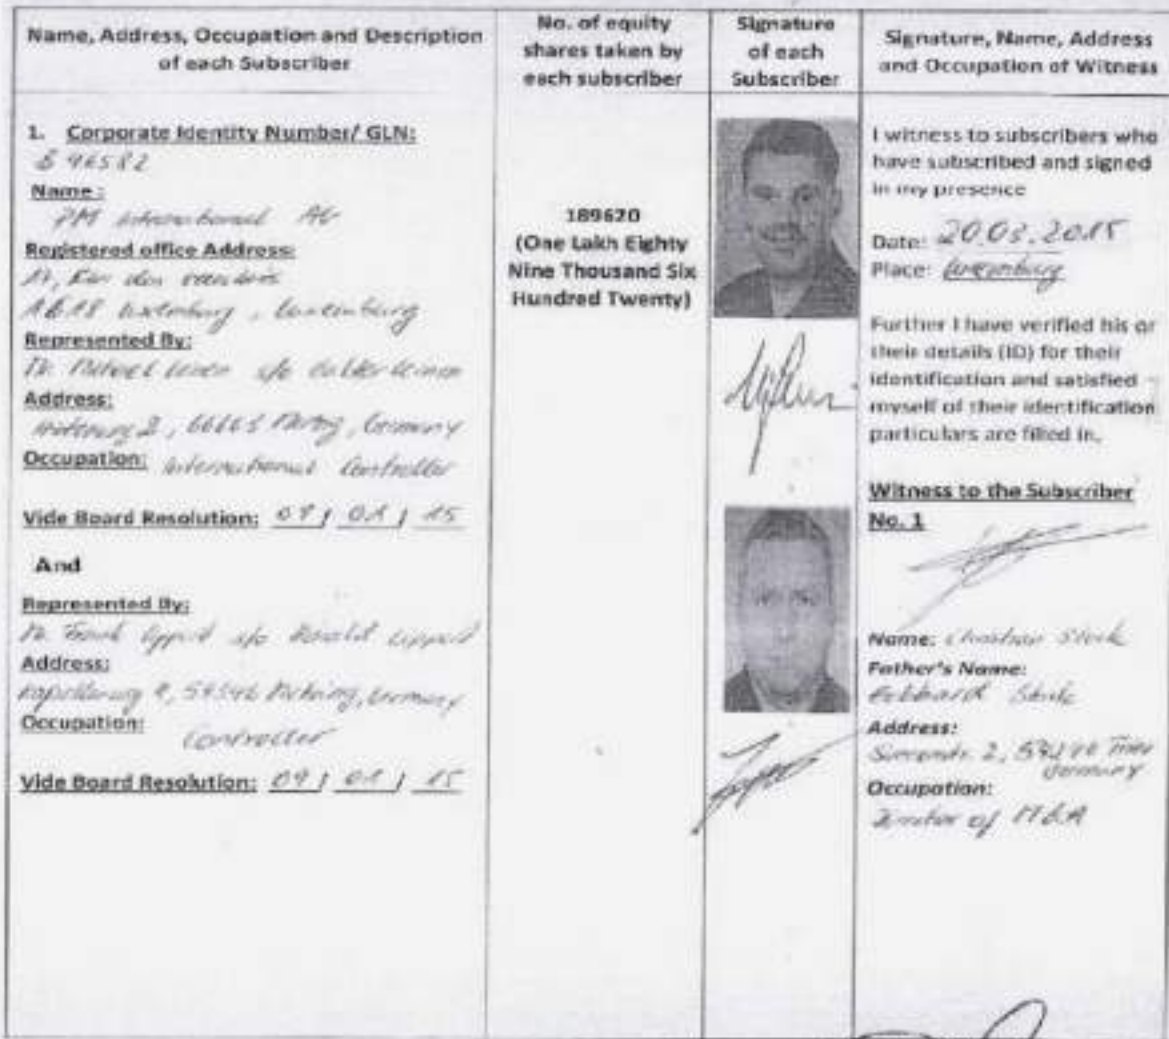 Name, Address, Occupation and Description
of each Subscriber
No. of equity
shares taken by
each subscriber
Signature
of each
Subscriber
Signature, Name, Address
and Occupation of Witness
1. Corporate Identity Number/ GLN:
96582
Name :
PM International AG
Registered office Address:
Luxemburg , Luxemburg
Represented By:
s/o
Address:
2, 66663 Merzig, Germany
Occupation: International Controller
Vide Board Resolution: 09 / 01 / 15
And
Represented By:
Frank Lippert s/o Lippert
Address:
Mehring, Germany
Occupation:
Controller
Vide Board Resolution: 09 / 01 / 15
189620
(One Lakh Eighty
Nine Thousand Six
Hundred Twenty)
I witness to subscribers who
have subscribed and signed
in my presence
Date: 20.03.2015
Place: Luxemburg
Further I have verified his or
their details (ID) for their
identification and satisfied
myself of their identification
particulars are filled in.
Witness to the Subscriber
No. 1
Name: Christian
Father's Name:
Address:
2, Trier
Germany
Occupation:
Director of